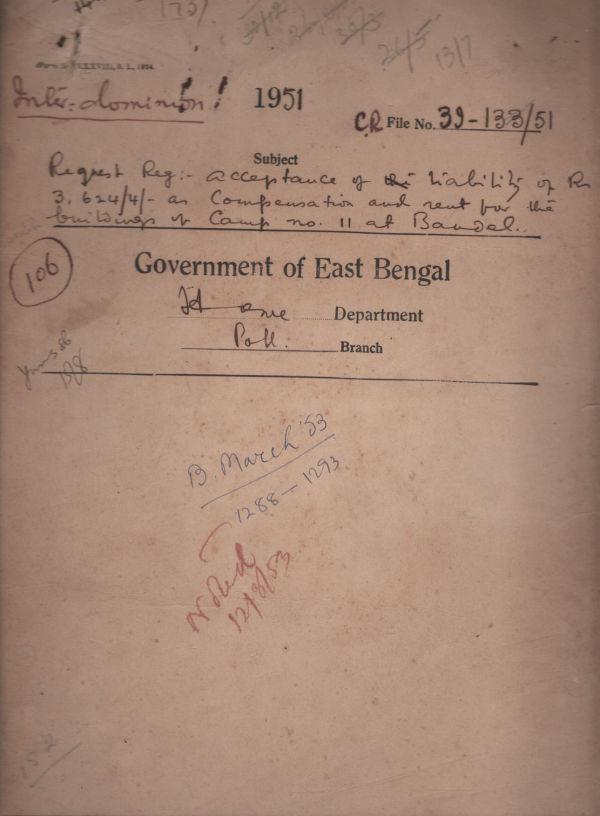 173)
26/5
13/7
Inter-dominion!
1951
C.R File No. 39-133/51
Subject
Request Reg:- acceptance of the liability of Rs
3,624/4/- as Compensation and rent for the
buildings of Camp no. 11 at Bandel.
106
Government of East Bengal
Home Department
Poll. Branch
B. March '53
1288 - 1293
Noted
12/3/53